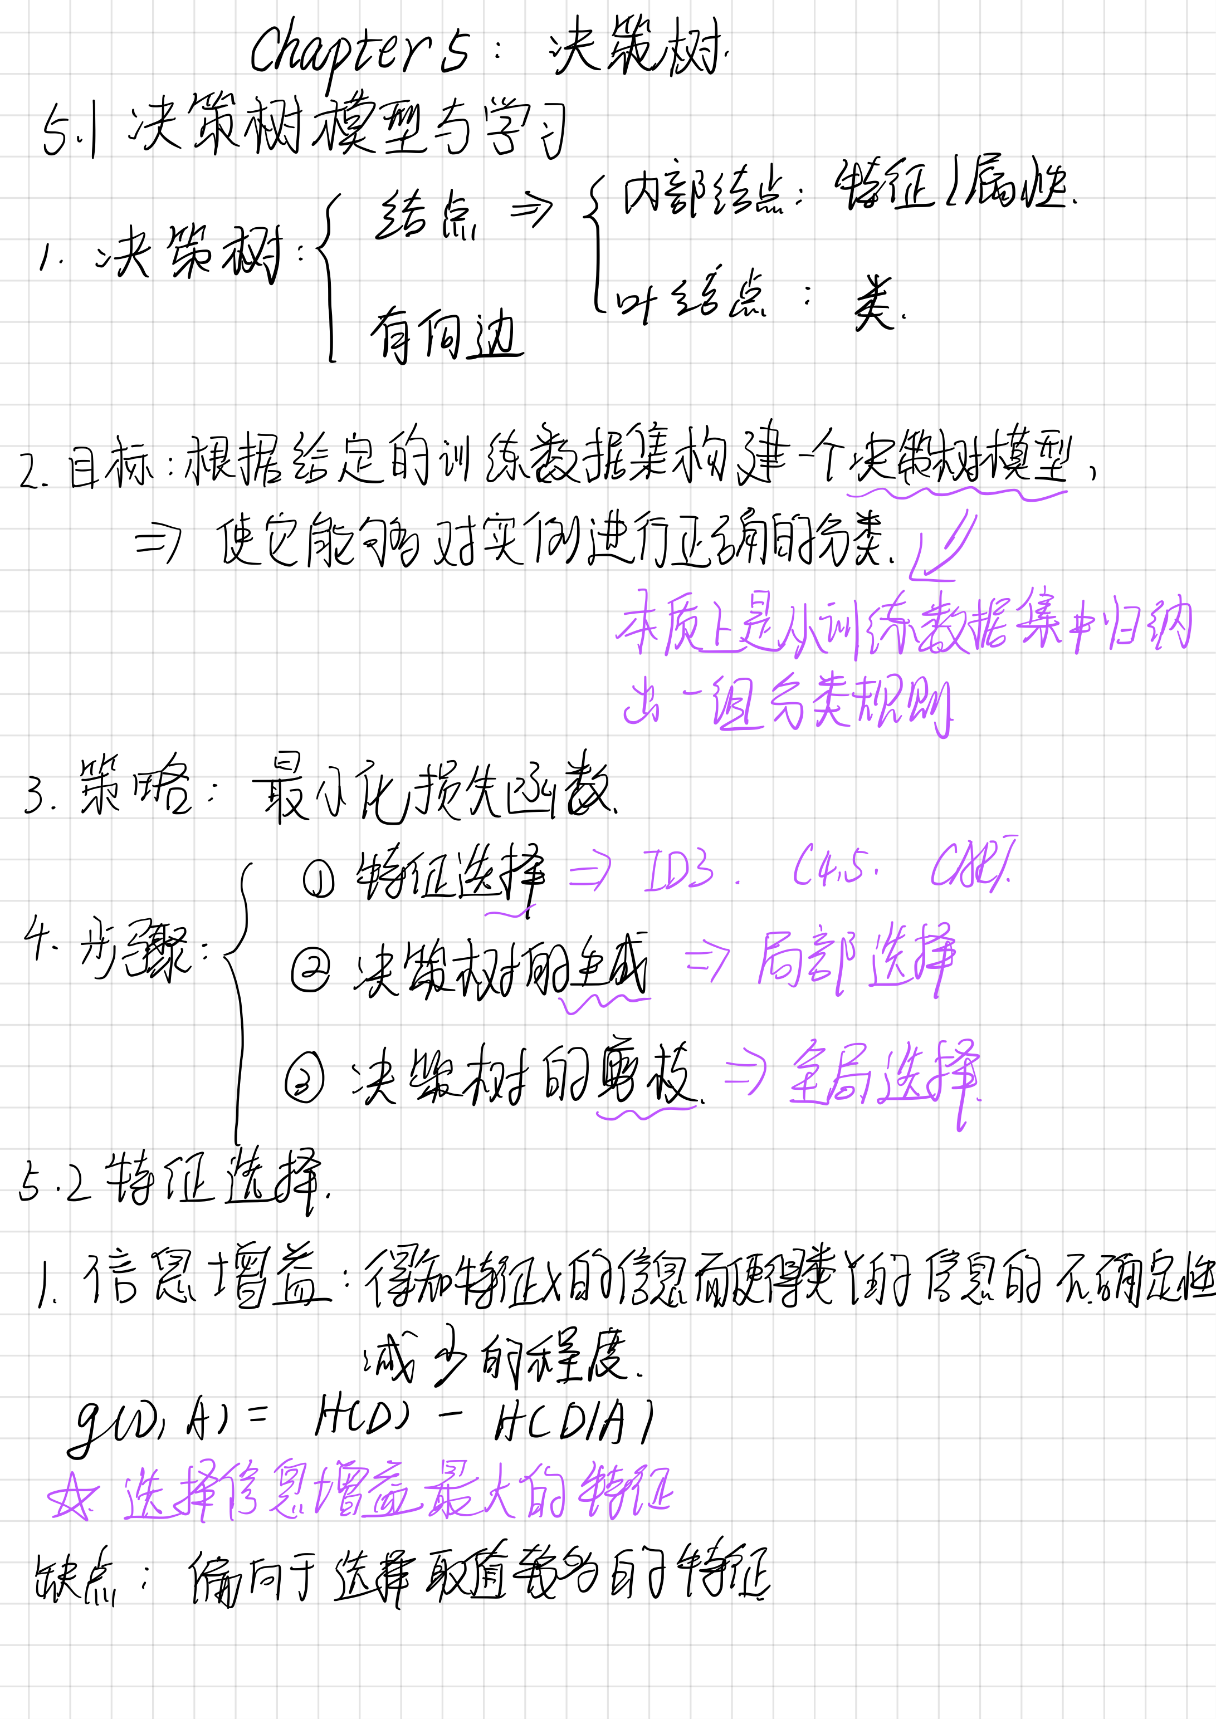 Chapter 5： 决策树.
5.1 决策树模型与学习
结点 ⇒ 内部结点：特征/属性.
1. 决策树：
叶结点：类.
有向边
2. 目标：根据给定的训练数据集构建一个决策树模型，
⇒ 使它能够对实例进行正确的分类.
本质上是从训练数据集中归纳
出一组分类规则
3. 策略：最小化损失函数.
① 特征选择 ⇒ ID3. C4.5. CART.
4. 步骤：
② 决策树的生成 ⇒ 局部选择
③ 决策树的剪枝. ⇒ 全局选择.
5.2 特征选择.
1. 信息增益：得知特征X的信息而使得类Y的信息的不确定性
减少的程度.
g(D, A) = H(D) - H(D|A)
☆ 选择信息增益最大的特征
缺点：偏向于选择取值较多的特征